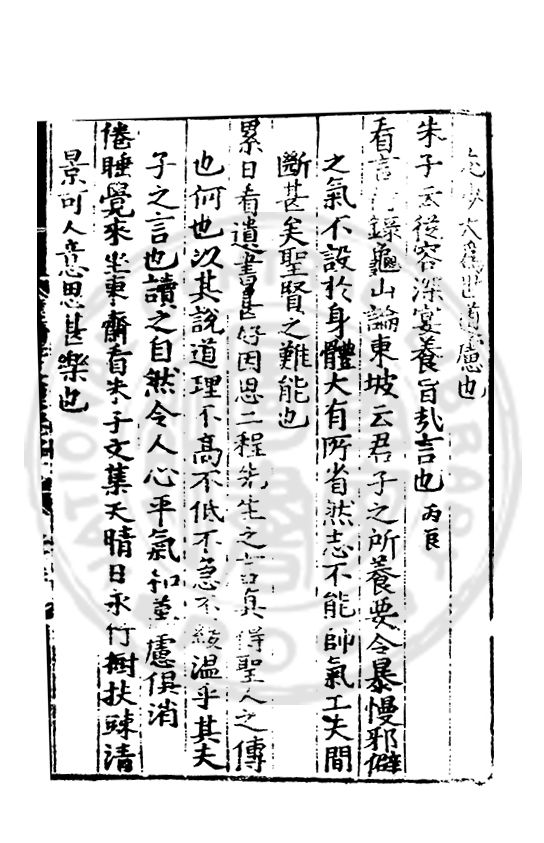 大　道慮也
朱子云從容深宴養旨哉言也丙辰
看言行錄龜山論東坡云君子之所養要令暴慢邪僻
之氣不設於身體大有所省然志不能帥氣工夫間
斷甚矣聖賢之難能也
累日看遺書甚好因思二程先生之言真得聖人之傳
也何也以其說道理不高不低不急不緩溫乎其夫
子之言也讀之自然令人心平氣和萬慮俱消
倦睡覺來坐東齋看朱子文集天晴日永竹樹扶疎清
景可人意思甚樂也